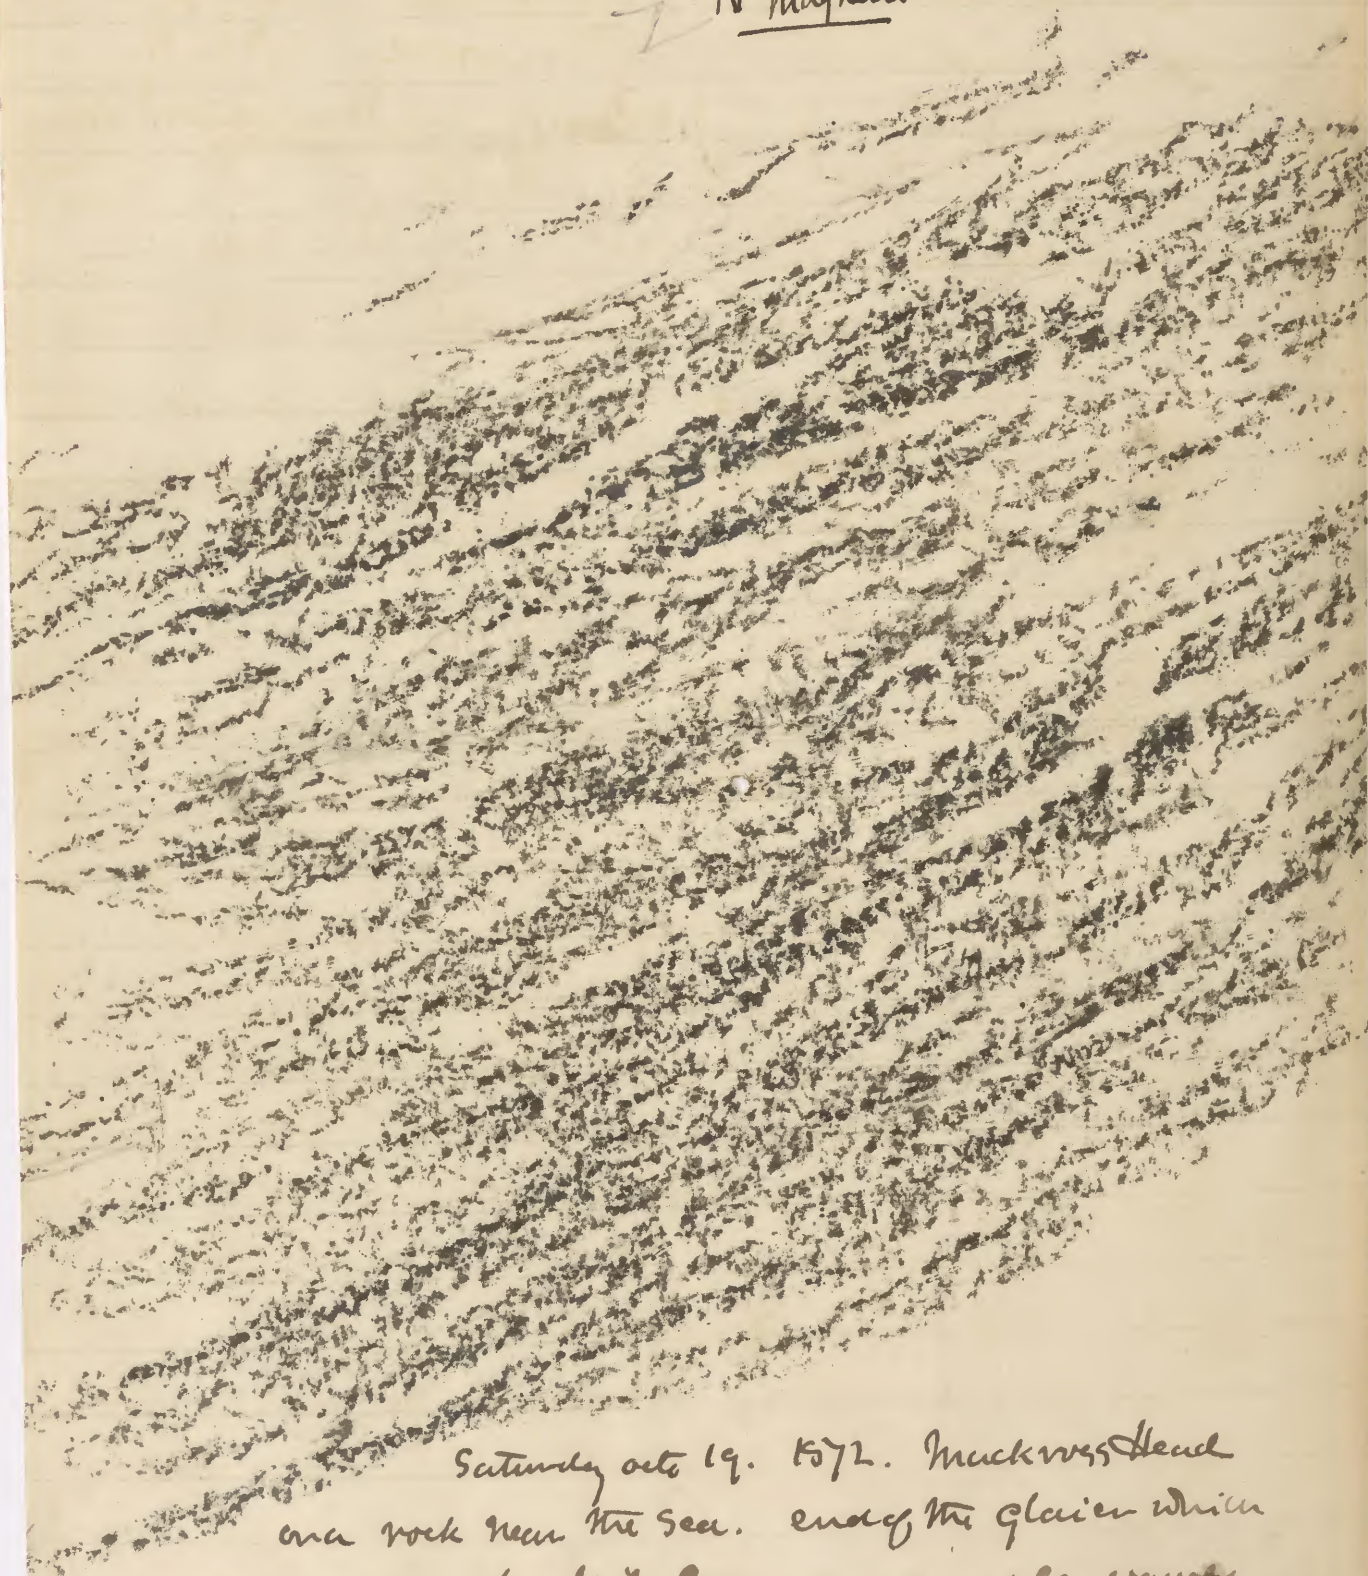 N Magnetic
Saturday octo 19. 1872. Muckross Head
on a rock near the Sea. end of the glacier which